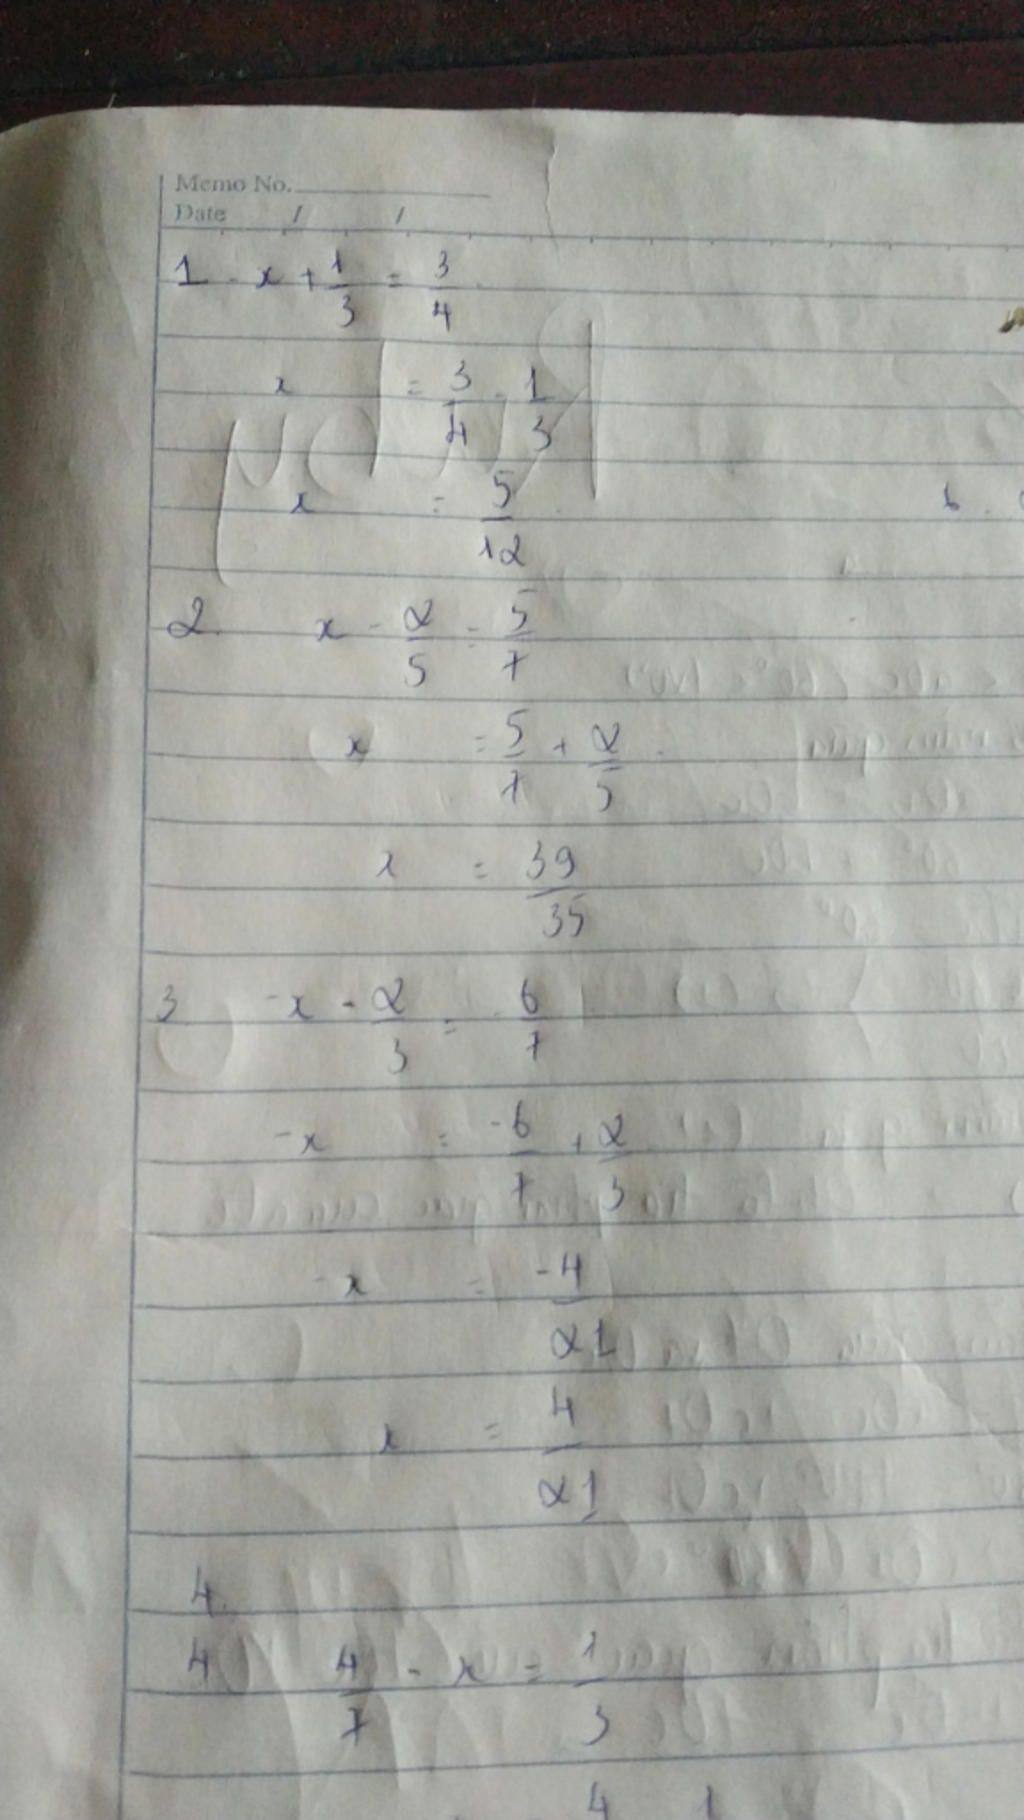 Memo No.
Date / /
1 - x + 1/3 = 3/4
x = 3/4 - 1/3
x = 5/12
2. x - 2/5 = 5/7
x = 5/7 + 2/5
x = 39/35
3 -x - 2/3 = 6/7
-x = -6/7 + 2/3
-x = -4/21
x = 4/21
4.
4 4/7 - x = 1/3